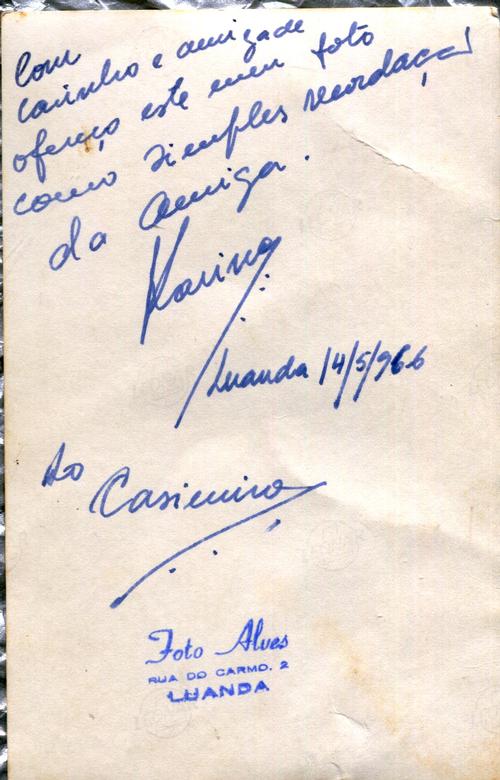 Com
carinho e amizade
ofereço este meu foto
como simples recordaçã
da amiga.
Karina
Luanda 14/5/966
Ao
Casimiro
Foto Alves
RUA DO CARMO, 2
LUANDA